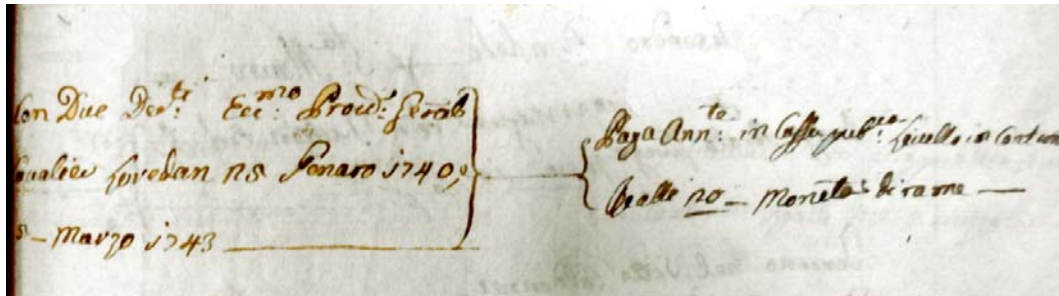 Con Due Decti: Eccmo Provd: Genãl
Cavalier Loredan 25 Genaro 1740,
– Marzo 1743
Paga Annte: in Cassa pubca Livello in Contan
Realli 20 – Moneta di rame –